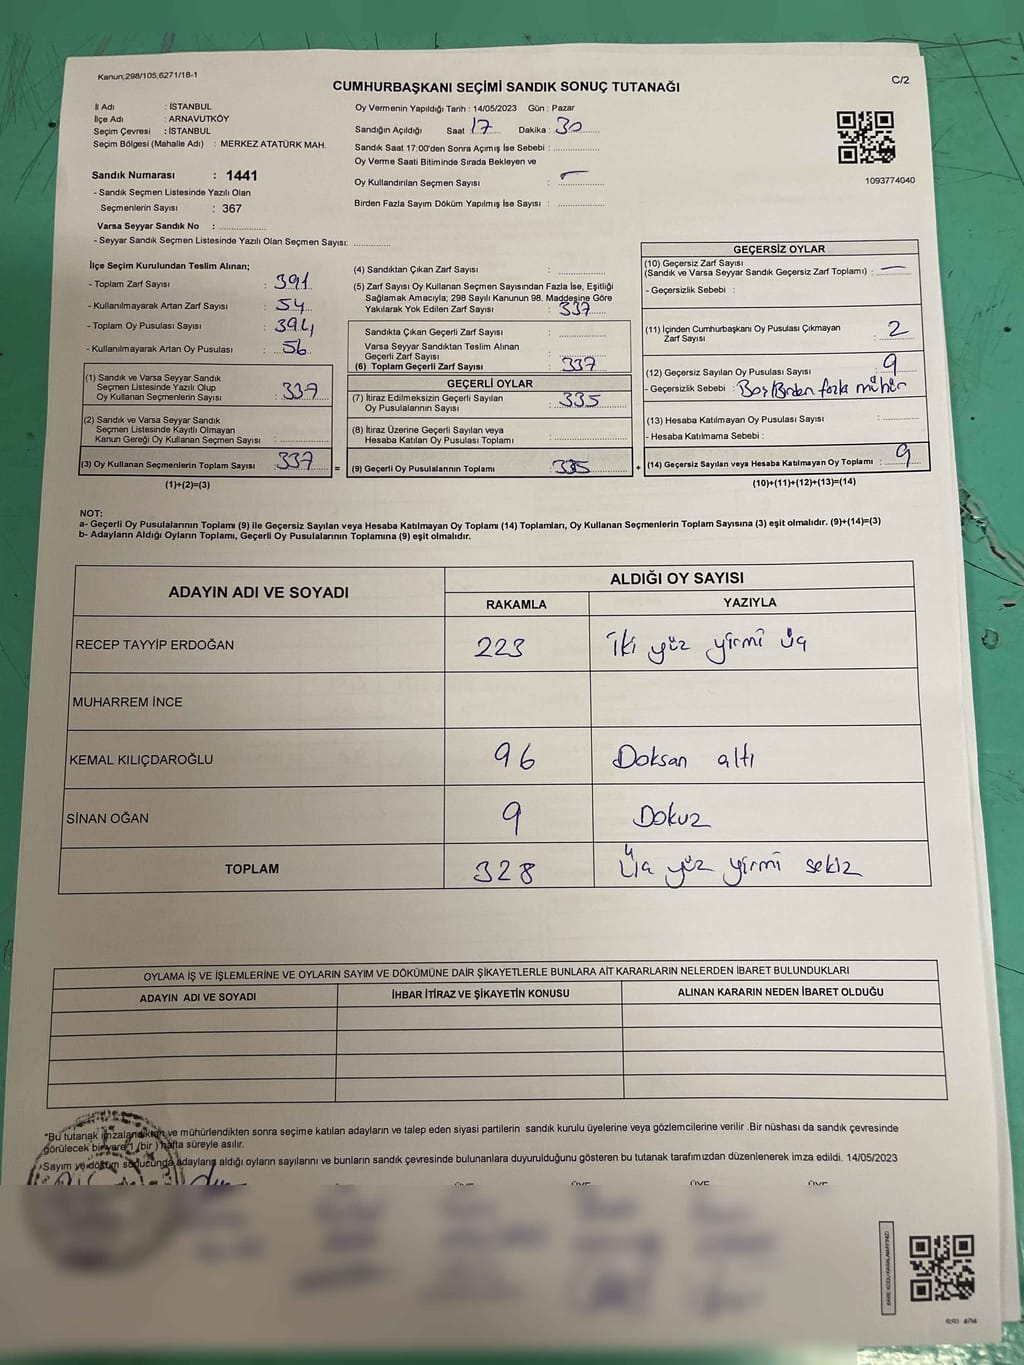 Kanun;298/105;6271/18-1
C/2
CUMHURBAŞKANI SEÇİMİ SANDIK SONUÇ TUTANAĞI
İl Adı : İSTANBUL
İlçe Adı : ARNAVUTKÖY
Seçim Çevresi : İSTANBUL
Seçim Bölgesi (Mahalle Adı) : MERKEZ ATATÜRK MAH.
Sandık Numarası : 1441
- Sandık Seçmen Listesinde Yazılı Olan
Seçmenlerin Sayısı : 367
Varsa Seyyar Sandık No :
- Seyyar Sandık Seçmen Listesinde Yazılı Olan Seçmen Sayısı:
Oy Vermenin Yapıldığı Tarih : 14/05/2023 Gün : Pazar
Sandığın Açıldığı Saat 17 Dakika : 30
Sandık Saat 17:00'den Sonra Açımış İse Sebebi :
Oy Verme Saati Bitiminde Sırada Bekleyen ve
Oy Kullandırılan Seçmen Sayısı : -
Birden Fazla Sayım Döküm Yapılmış İse Sayısı :
1093774040
İlçe Seçim Kurulundan Teslim Alınan;
- Toplam Zarf Sayısı : 391
- Kullanılmayarak Artan Zarf Sayısı : 54
- Toplam Oy Pusulası Sayısı : 394
- Kullanılmayarak Artan Oy Pusulası : 56
(1) Sandık ve Varsa Seyyar Sandık
Seçmen Listesinde Yazılı Olup
Oy Kullanan Seçmenlerin Sayısı : 337
(2) Sandık ve Varsa Seyyar Sandık
Seçmen Listesinde Kayıtlı Olmayan
Kanun Gereği Oy Kullanan Seçmen Sayısı :
(3) Oy Kullanan Seçmenlerin Toplam Sayısı : 337
(1)+(2)=(3)
(4) Sandıktan Çıkan Zarf Sayısı :
(5) Zarf Sayısı Oy Kullanan Seçmen Sayısından Fazla İse, Eşitliği
Sağlamak Amacıyla; 298 Sayılı Kanunun 98. Maddesine Göre
Yakılarak Yok Edilen Zarf Sayısı : 337
Sandıkta Çıkan Geçerli Zarf Sayısı :
Varsa Seyyar Sandıktan Teslim Alınan
Geçerli Zarf Sayısı :
(6) Toplam Geçerli Zarf Sayısı : 337
GEÇERLİ OYLAR
(7) İtiraz Edilmeksizin Geçerli Sayılan
Oy Pusulalarının Sayısı : 335
(8) İtiraz Üzerine Geçerli Sayılan veya
Hesaba Katılan Oy Pusulası Toplamı :
= (9) Geçerli Oy Pusulalarının Toplamı : 335 +
GEÇERSİZ OYLAR
(10) Geçersiz Zarf Sayısı
(Sandık ve Varsa Seyyar Sandık Geçersiz Zarf Toplamı) : -
- Geçersizlik Sebebi :
(11) İçinden Cumhurbaşkanı Oy Pusulası Çıkmayan
Zarf Sayısı : 2
(12) Geçersiz Sayılan Oy Pusulası Sayısı : 9
- Geçersizlik Sebebi : Boş/Birden fazla mühür
(13) Hesaba Katılmayan Oy Pusulası Sayısı :
- Hesaba Katılmama Sebebi :
(14) Geçersiz Sayılan veya Hesaba Katılmayan Oy Toplamı : 9
(10)+(11)+(12)+(13)=(14)
NOT:
a- Geçerli Oy Pusulalarının Toplamı (9) ile Geçersiz Sayılan veya Hesaba Katılmayan Oy Toplamı (14) Toplamları, Oy Kullanan Seçmenlerin Toplam Sayısına (3) eşit olmalıdır. (9)+(14)=(3)
b- Adayların Aldığı Oyların Toplamı, Geçerli Oy Pusulalarının Toplamına (9) eşit olmalıdır.
ADAYIN ADI VE SOYADI
ALDIĞI OY SAYISI
RAKAMLA YAZIYLA
RECEP TAYYİP ERDOĞAN 223 İki yüz yirmi üç
MUHARREM İNCE
KEMAL KILIÇDAROĞLU 96 Doksan altı
SİNAN OĞAN 9 Dokuz
TOPLAM 328 Üç yüz yirmi sekiz
OYLAMA İŞ VE İŞLEMLERİNE VE OYLARIN SAYIM VE DÖKÜMÜNE DAİR ŞİKAYETLERLE BUNLARA AİT KARARLARIN NELERDEN İBARET BULUNDUKLARI
ADAYIN ADI VE SOYADI İHBAR İTİRAZ VE ŞİKAYETİN KONUSU ALINAN KARARIN NEDEN İBARET OLDUĞU
*Bu tutanak imzalandıktan ve mühürlendikten sonra seçime katılan adayların ve talep eden siyasi partilerin sandık kurulu üyelerine veya gözlemcilerine verilir .Bir nüshası da sandık çevresinde
görülecek bir yere 1 (bir ) hafta süreyle asılır.
*Sayım ve döküm sonucunda adayların aldığı oyların sayılarını ve bunların sandık çevresinde bulunanlara duyurulduğunu gösteren bu tutanak tarafımızdan düzenlenerek imza edildi. 14/05/2023
ÜYE ÜYE ÜYE ÜYE
KARE KODU KARALAMAYINIZ!